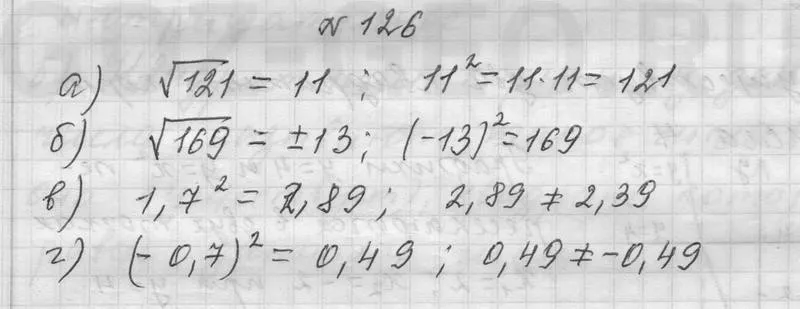 № 126
а) √121 = 11 ; 11² = 11·11 = 121
б) √169 = ±13 ; (-13)² = 169
в) 1,7² = 2,89 ; 2,89 ≠ 2,39
г) (- 0,7)² = 0,49 ; 0,49 ≠ -0,49